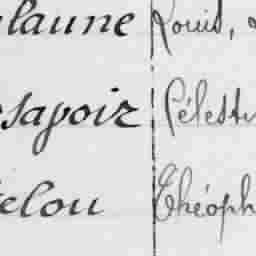 laune Louis,
sapoir Célest
elou Théoph